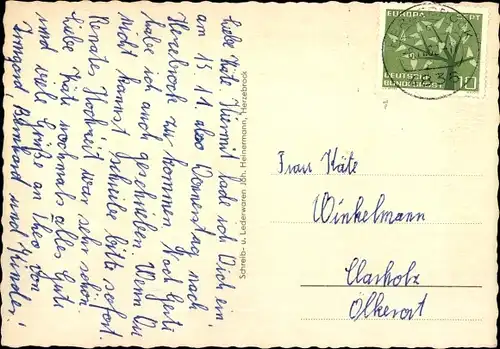 Liebe Käte. Hiermit lade ich Dich ein
am 15.11. also Donnerstag nach
Herzebrock zu kommen. Doch Gerti
habe ich auch geschrieben. Wenn Du
nicht kannst schreibe bitte sofort.
Renates Hochzeit war sehr schön.
Liebe Käte nochmals alles Gute
und viele Grüße an Theo von
Irmgard Bernhard und Kinder!
Schreib- u. Lederwaren Joh. Heinermann, Herzebrock
EUROPA CEPT
DEUTSCHE
BUNDESPOST 10
Frau Käte
Winkelmann
Clarholz
Ölkerort